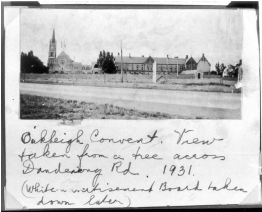 Oakleigh Convent. View
taken from a tree across
Dandenong Rd. 1931.
(White advertisement Board taken
down later)